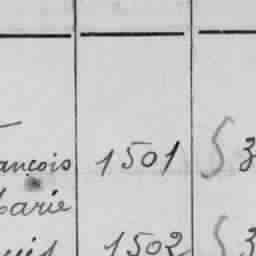 ançois 1501 § 3
Marie
1502 § 3